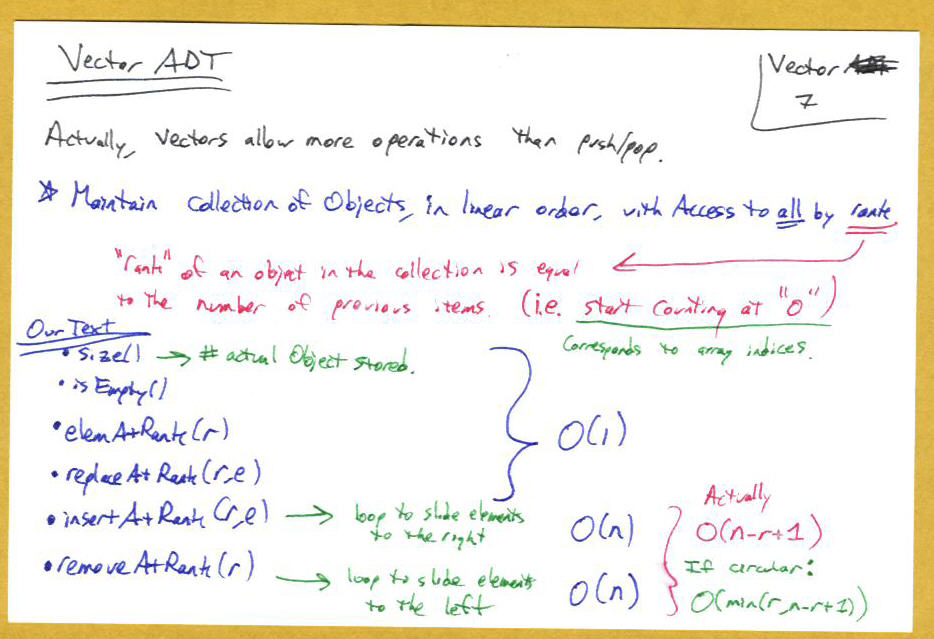 Vector ADT
Vector
7
Actually, Vectors allow more operations than push/pop.
☆ Maintain Collection of Objects, in linear order, with Access to all by rank.
"rank" of an object in the collection is equal
to the number of previous items. (i.e. start counting at "0")
Corresponds to array indices.
Our Text
• size() → # actual Object stored.
• isEmpty()
• elemAtRank(r)
O(1)
• replaceAtRank(r,e)
• insertAtRank(r,e) → loop to slide elements
to the right
O(n)
• removeAtRank(r) → loop to slide elements
to the left
O(n)
Actually
O(n-r+1)
If circular:
O(min(r,n-r+1))